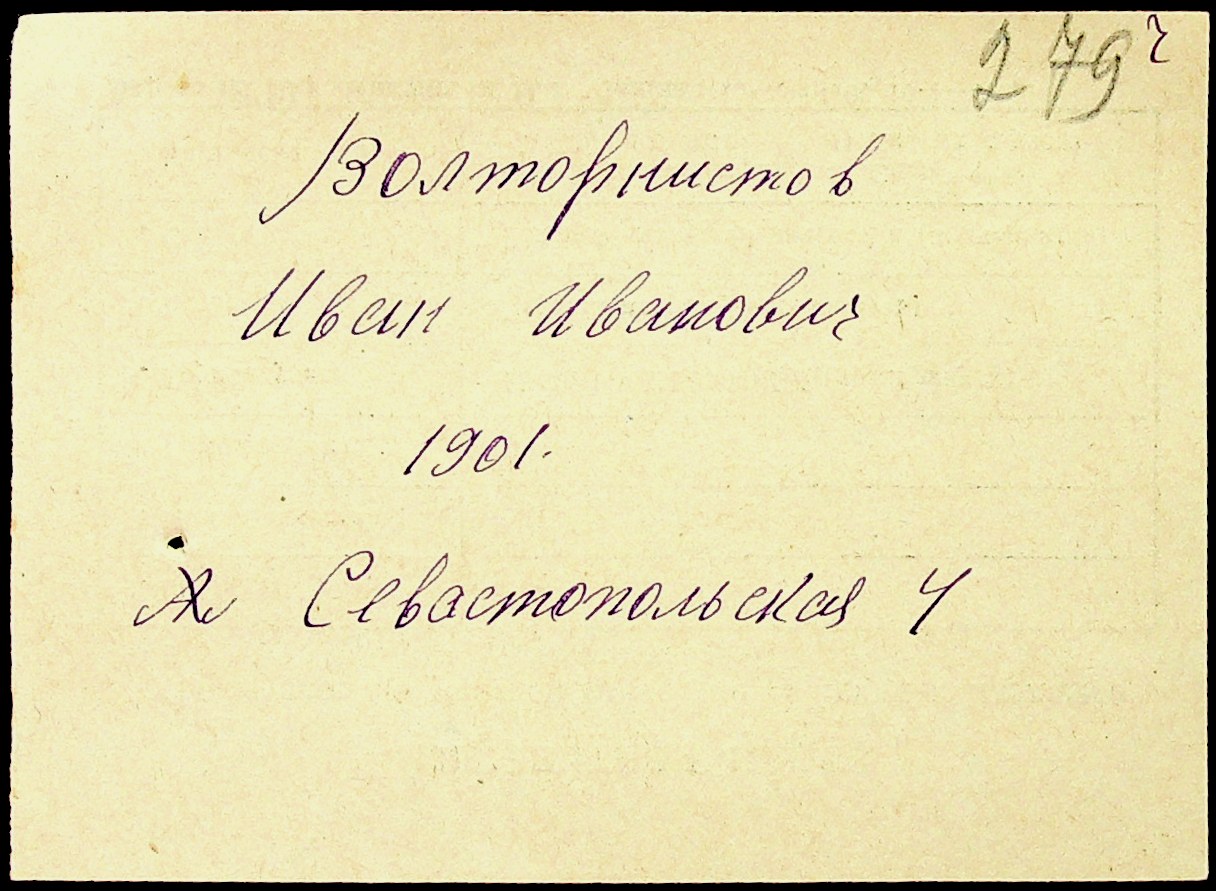 279 ч
Волторнистов
Иван Иванович
1901.
Севастопольская 4